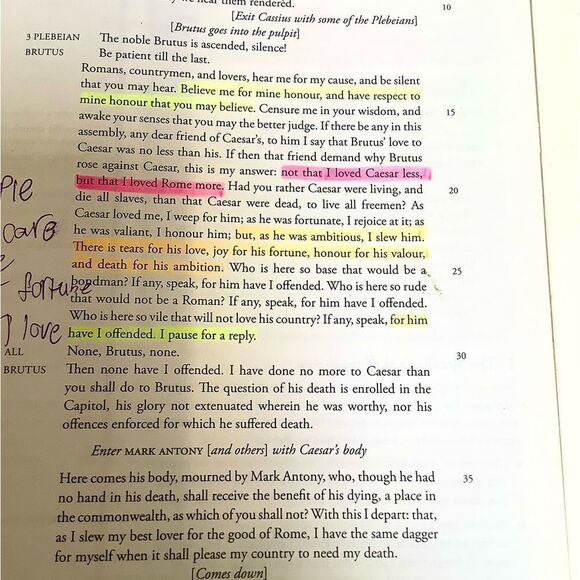 hear them rendered.
10
[Exit Cassius with some of the Plebeians]
[Brutus goes into the pulpit]
3 PLEBEIAN The noble Brutus is ascended, silence!
BRUTUS Be patient till the last.
Romans, countrymen, and lovers, hear me for my cause, and be silent
that you may hear. Believe me for mine honour, and have respect to
mine honour that you may believe. Censure me in your wisdom, and 15
awake your senses that you may the better judge. If there be any in this
assembly, any dear friend of Caesar's, to him I say that Brutus' love to
Caesar was no less than his. If then that friend demand why Brutus
rose against Caesar, this is my answer: not that I loved Caesar less,
but that I loved Rome more. Had you rather Caesar were living, and 20
die all slaves, than that Caesar were dead, to live all freemen? As
Caesar loved me, I weep for him; as he was fortunate, I rejoice at it; as
he was valiant, I honour him; but, as he was ambitious, I slew him.
There is tears for his love, joy for his fortune, honour for his valour,
and death for his ambition. Who is here so base that would be a 25
bondman? If any, speak, for him have I offended. Who is here so rude
that would not be a Roman? If any, speak, for him have I offended.
Who is here so vile that will not love his country? If any, speak, for him
have I offended. I pause for a reply.
ALL None, Brutus, none. 30
BRUTUS Then none have I offended. I have done no more to Caesar than
you shall do to Brutus. The question of his death is enrolled in the
Capitol, his glory not extenuated wherein he was worthy, nor his
offences enforced for which he suffered death.
Enter MARK ANTONY [and others] with Caesar's body
Here comes his body, mourned by Mark Antony, who, though he had 35
no hand in his death, shall receive the benefit of his dying, a place in
the commonwealth, as which of you shall not? With this I depart: that,
as I slew my best lover for the good of Rome, I have the same dagger
for myself when it shall please my country to need my death.
[Comes down]
fortune
love